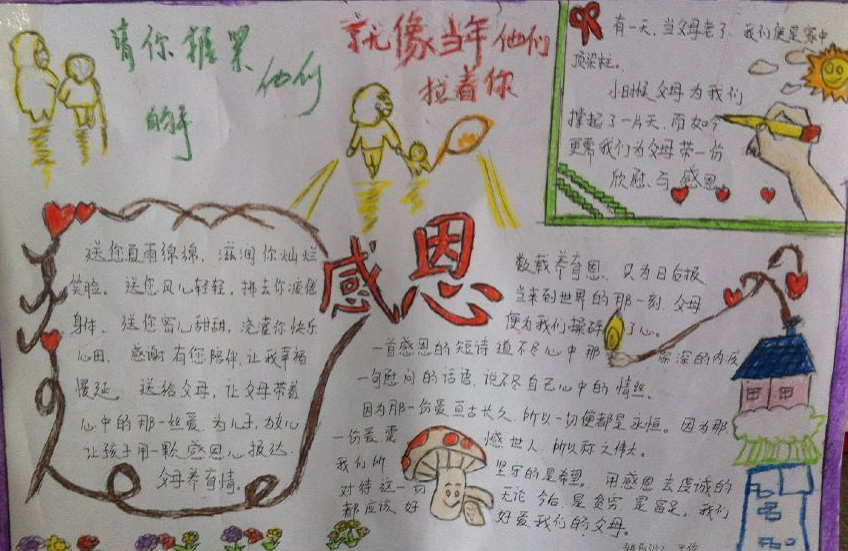 请你握紧他们
的手
就像当年他们
拉着你
有一天,当父母老了,我们便是家中
顶梁柱。
小时候父母为我们
撑起了一片天,而如今
更需我们为父母带一份
欣慰与感恩。
感恩
送您夏雨绵绵,滋润你灿烂
笑脸。送您风儿轻轻,拂去你疲倦
身体。送您窗心甜甜,浇灌你快乐
心田。感谢有您陪伴,让我幸福
慢延。送给父母,让父母带着
心中的那一丝爱。为儿子,放心
让孩子用一颗感恩心报达
父母养育情。
数载养育恩,只为日后报
当来到世界的那一刻,父母
便为我们操碎了心。
一首感恩的短诗道不尽心中那深深的内疚
一句慰问的话语,说不尽自己心中的情丝。
因为那一份爱亘古长久,所以一切便都是永恒。因为那
一份爱震憾世人,所以称之伟大。
我们所坚守的是希望。用感恩去虔诚的
对待这一切无论今后是贫穷是富足,我们
都应该好好爱我们的父母。